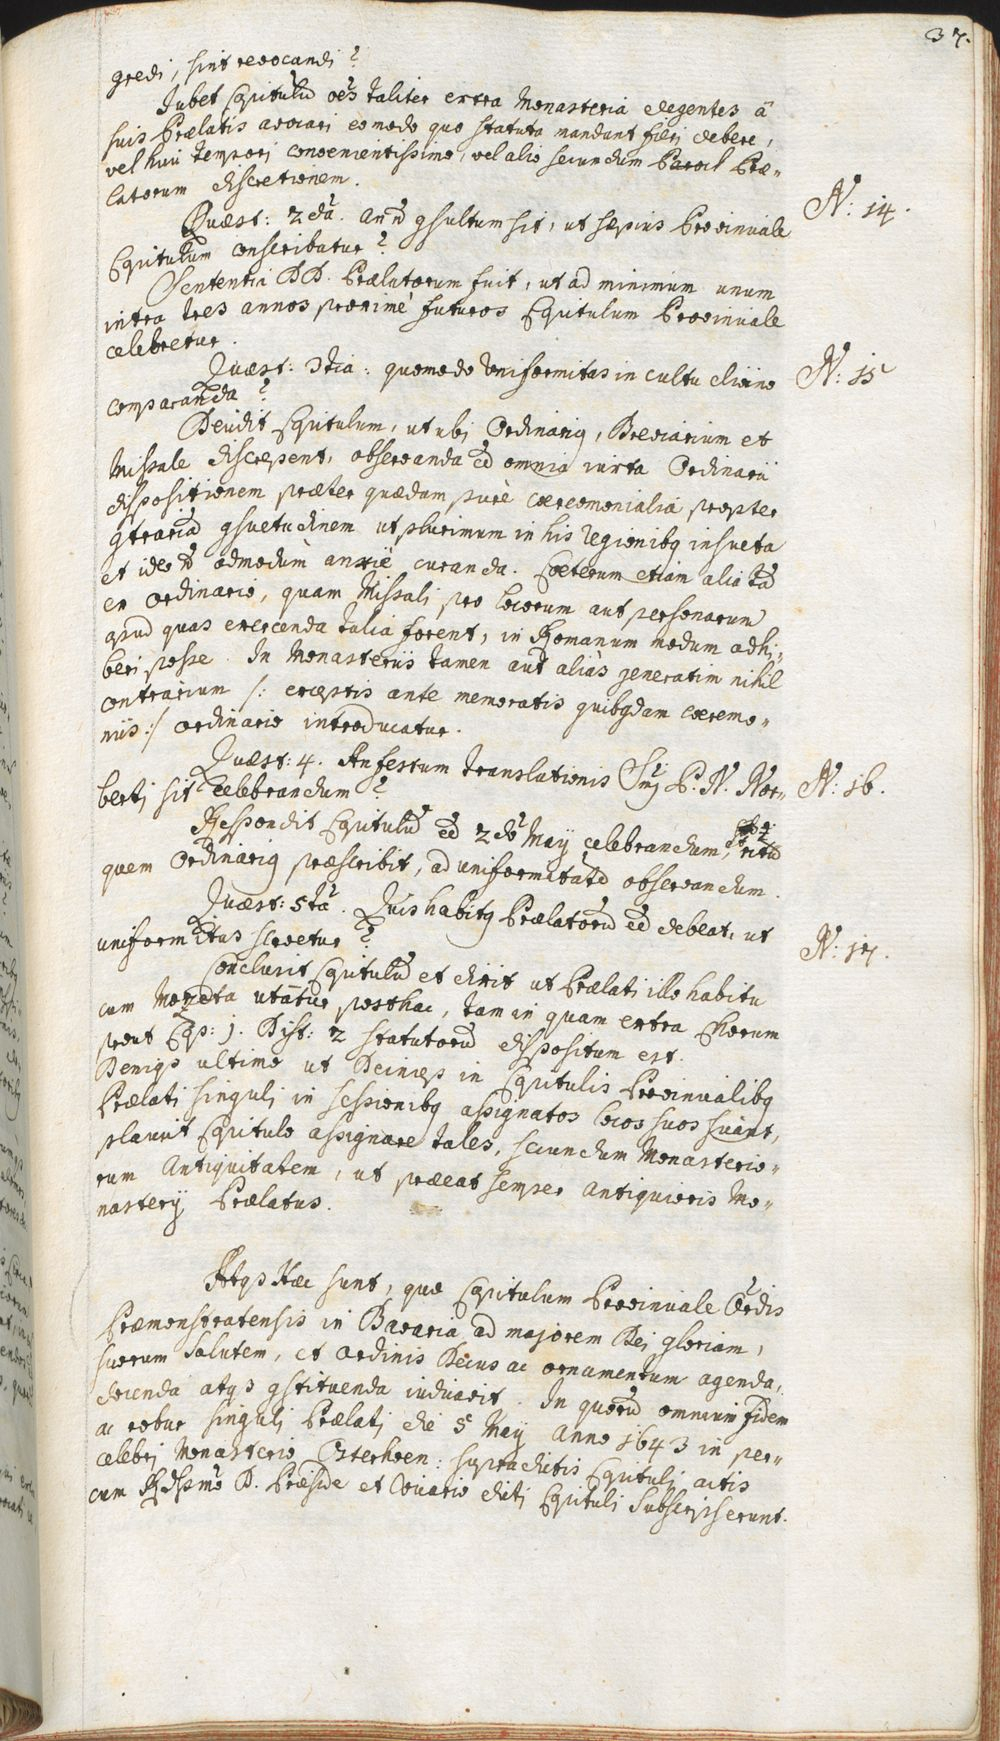 37.
gredi, sint revocandi?
Jubet Cap̃itulũ oẽs taliter extra Monasteria degentes â
suis Prælatis avocari eo modo quo statuta mandant fieri debere,
vel huic tempori convenientissimo, vel alio secundum Præ-
latorum discretionem.
Quæst: 2dã. an ñ gsultum sit, ut sæpius Provinciale N: 14.
Capitulum conscribatur?
Sententia DD. Prælatorum fuit, ut ad minimum unum
intra tres annos proximè futuros Capitulum Provinciale
celebretur.
Quæst: 3tia: quomodo Uniformitas in cultu divino N: 15
comparanda?
Capitulum, ut ubi Ordinariq, Breviarium et
Missale discrepent, observanda eẽ omnia iuxta Ordinarii
dispositionem præter quædam purè cæremonialia propter
gtrariã gsuetudinem ut plurimum in his regionibq insueta
et ideo ñ admodum anxiè curanda. Cæterum etiam alia tã
ex Ordinario, quam Missali pro locorum aut personarum
apud quas exercenda talia forent, in Romanum modum adhi-
beri posse. In Monasteriis tamen aut aliàs generatim nihil
contrarium /: exceptis ante memoratis quibqdam cæremo-
niis :/ ordinario introducatur.
Quæst: 4. An festum translationis Smi P. N. Nor- N: 16.
berti sit celebrandum?
Respondit Capitulũ eẽ 2do Maÿ celebrandum, ritũ
quem Ordinariq præscribit, ad uniformitatẽ observandum.
Quæst: 5tã. Quis habitq Prælatorũ eẽ debeat, ut N: 17.
uniformitas servetur?
Conclusit Capitulũ et dixit ut Prælati illo habitu
cum Mozeta utãtur posthac, tam in quam extra Chorum
prout Cap: 1. Dist: 2 statutorũ dispositum est.
Deniq3 ultimo ut Deinceps in Capitulis Provincialibq
Prælati singuli in sessionibq assignatos locos suos sciant,
placuit Capitulo assignare tales, secundum Monasterio-
rum Antiquitatem, ut præeat semper antiquioris Mo-
nasterÿ Prælatus.
Atq3 Hæc sunt, quæ Capitulum Provinciale Ordĩs
Præmonstratensis in Bavaria ad majorem Dei gloriam,
suorum Salutem, et Ordinis Decus ac ornamentum agenda,
docenda atq3 gstituenda iudicavit. In quorũ omnium fidem
ac robur singuli Prælati die 5 Maÿ Anno 1643 in per-
celebri Monasterio Osterhoen: supradictis Capituli actis
cum Rdssmo D. Præside et Vicario dicti Capituli Subscripserunt.